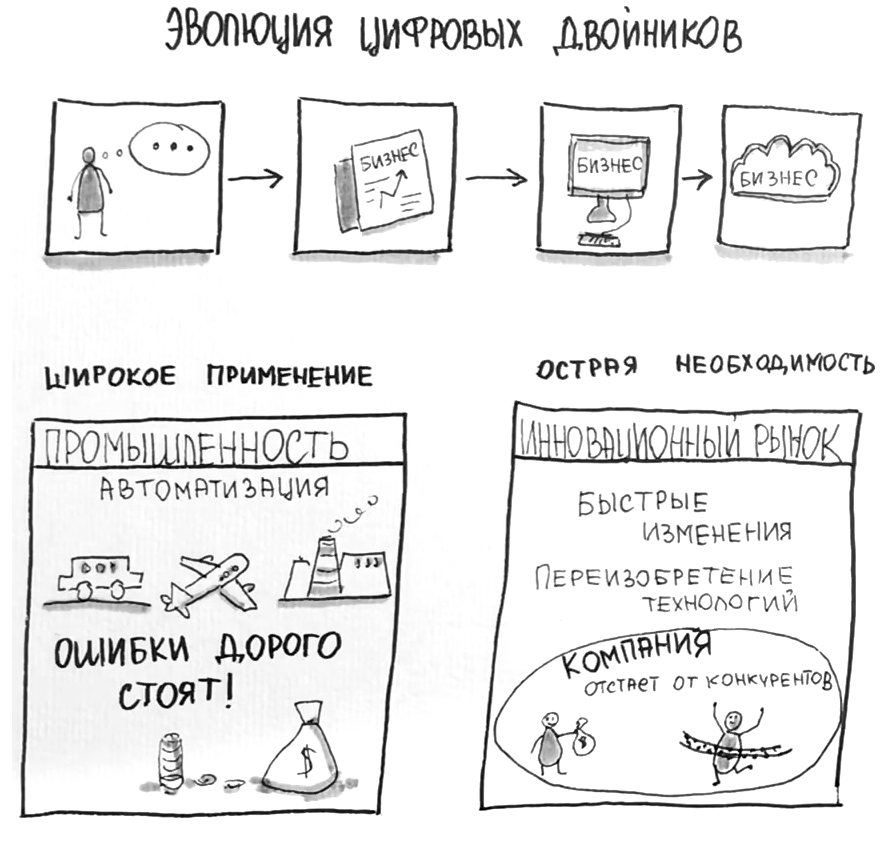 ЭВОЛЮЦИЯ ЦИФРОВЫХ ДВОЙНИКОВ
...
БИЗНЕС
БИЗНЕС
БИЗНЕС
ШИРОКОЕ ПРИМЕНЕНИЕ
ПРОМЫШЛЕННОСТЬ
АВТОМАТИЗАЦИЯ
ОШИБКИ ДОРОГО
СТОЯТ!
$
ОСТРАЯ НЕОБХОДИМОСТЬ
ИННОВАЦИОННЫЙ РЫНОК
БЫСТРЫЕ
ИЗМЕНЕНИЯ
ПЕРЕИЗОБРЕТЕНИЕ
ТЕХНОЛОГИЙ
КОМПАНИЯ
ОТСТАЕТ ОТ КОНКУРЕНТОВ
$